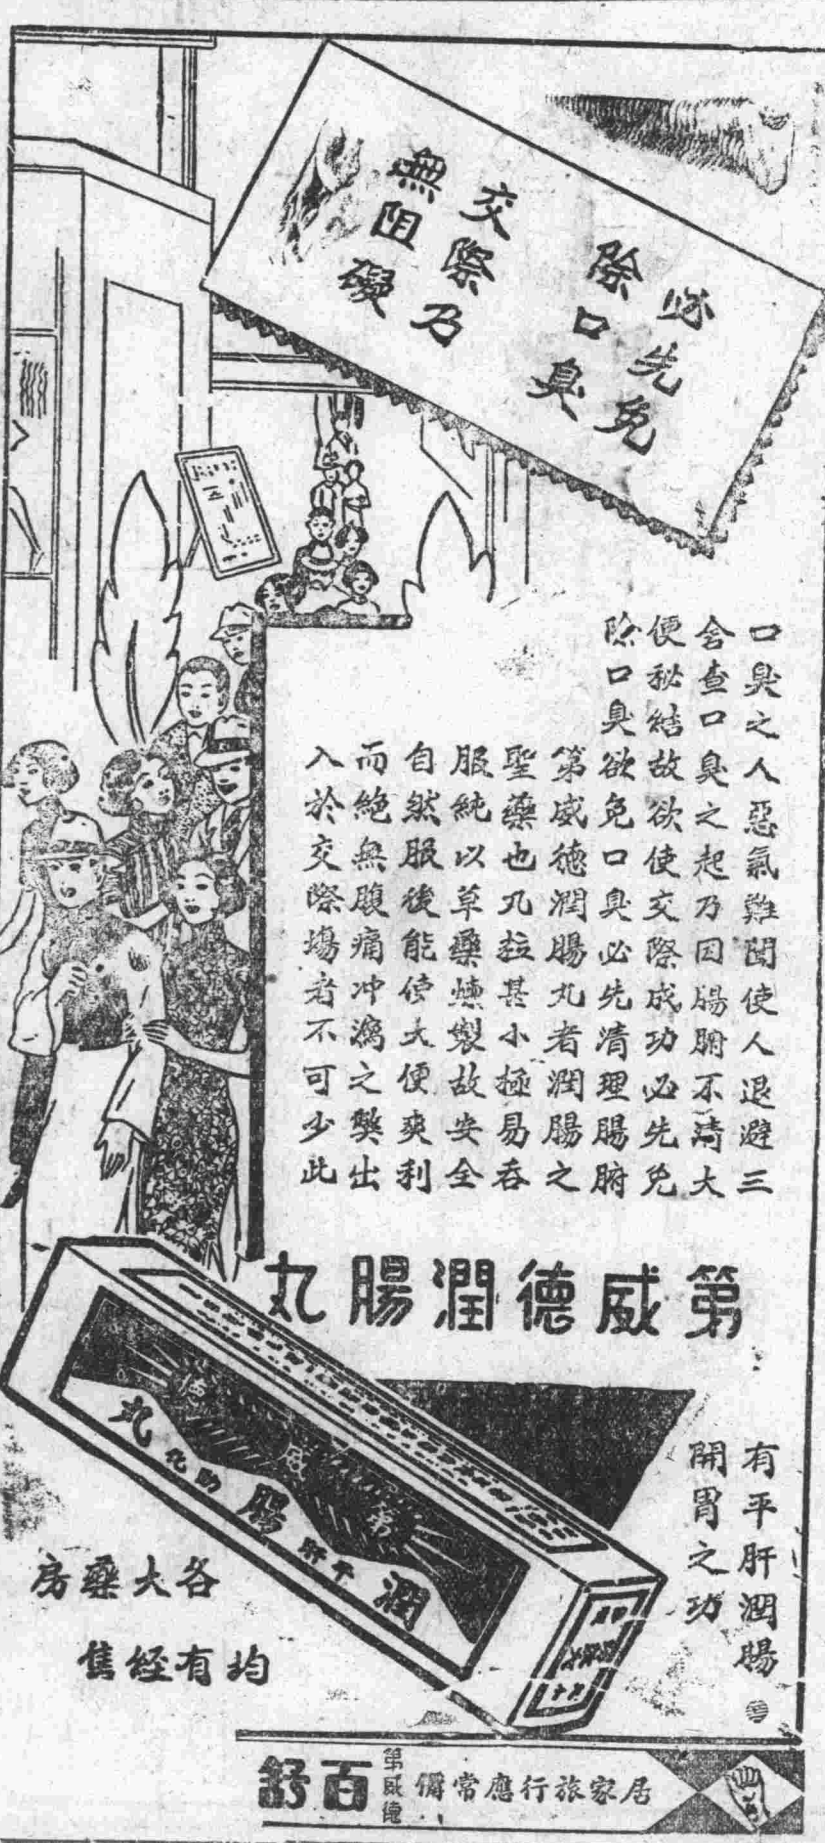 必先免
除口臭
交際乃
無阻礙
口臭之人惡氣難聞使人退避三
舍查口臭之起乃因腸腑不清大
便秘結故欲使交際成功必先免
除口臭欲免口臭必先清理腸腑
第威德潤腸丸者潤腸之
聖藥也丸粒甚小極易吞
服純以草藥煉製故安全
自然服後能使大便爽利
而絕無腹痛冲瀉之弊出
入於交際塲者不可少此
第威德潤腸丸
有平肝潤腸
開胃之功
第威德
潤腸丸
平肝助化
各大藥房
均有經售
居家旅行應常備
第威德
百舒